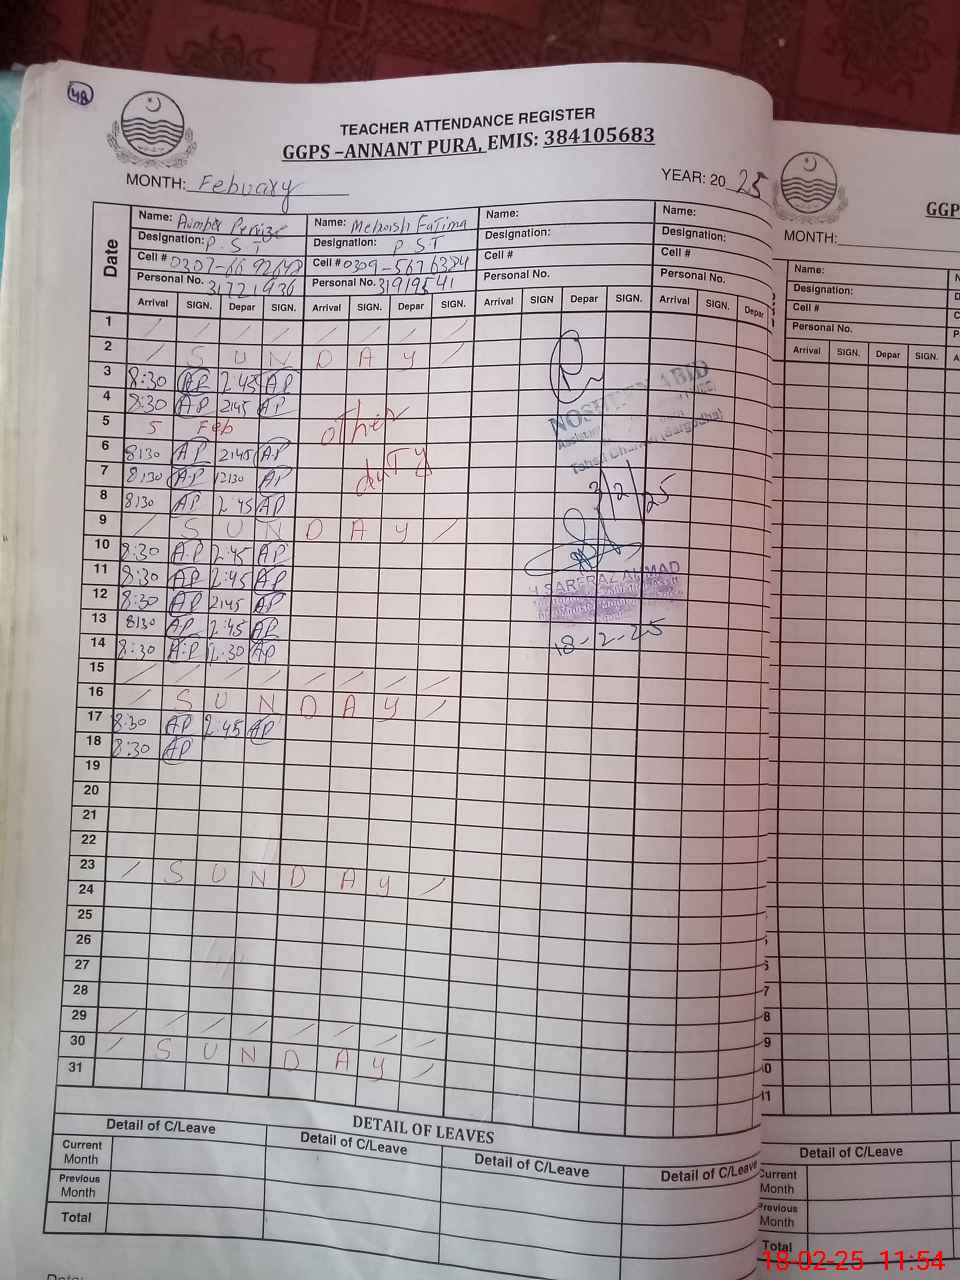 48
TEACHER ATTENDANCE REGISTER
GGPS –ANNANT PURA, EMIS: 384105683
MONTH: Febuary YEAR: 2025
Date
Name: Name: Mehoish Fatima Name: Name:
Designation: P.S.T Designation: P S T Designation: Designation:
Cell # 0307-6692648 Cell # 0309-5676384 Cell # Cell #
Personal No. 31721936 Personal No. 31919541 Personal No. Personal No.
Arrival SIGN. Depar SIGN. Arrival SIGN. Depar SIGN. Arrival SIGN Depar SIGN. Arrival SIGN. Depar
1 / / / / / / / /
2 / S U N D A Y /
3 8:30 AP 2:45 AP
4 8:30 AP 2:45 AP
5 5 Feb other
6 8:30 AP 2:45 AP
7 8:30 AP 12:30 AP duty
8 8:30 AP 2:45 AP
9 / S U N D A Y /
10 8:30 A.P 2:45 AP
11 8:30 AP 2:45 AP
12 8:30 AP 2:45 AP
13 8:30 AP 2:45 AP
14 8:30 A.P 12:30 AP
15 / / / / / / / /
16 / S U N D A Y /
17 8:30 AP 2:45 AP
18 8:30 AP
19
20
21
22
23 / S U N D A Y /
24
25
26
27
28
29 / / / / / / / /
30 / S U N D A Y /
31
ABID
3/2/25
SARFRAZ AHMAD
18-2-25
DETAIL OF LEAVES
Detail of C/Leave Detail of C/Leave Detail of C/Leave Detail of C/Leave
Current Month
Previous Month
Total
GGP
MONTH:
Name:
Designation:
Cell #
Personal No.
Arrival SIGN. Depar SIGN.
Detail of C/Leave
Current Month
Previous Month
Total
18-02-25 11:54